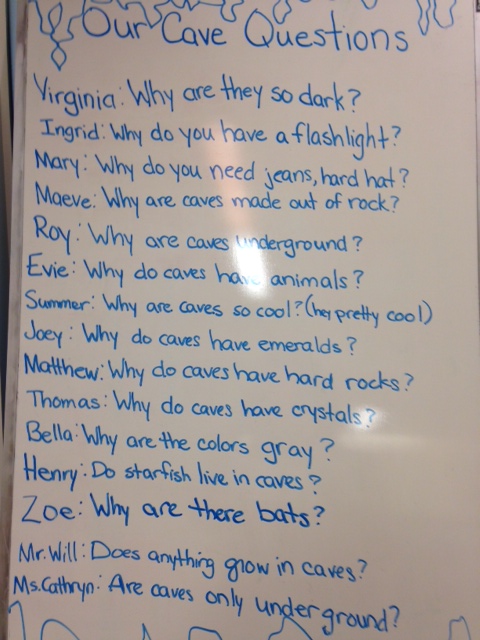 Our Cave Questions
Virginia: Why are they so dark?
Ingrid: Why do you have a flashlight?
Mary: Why do you need jeans, hard hat?
Maeve: Why are caves made out of rock?
Roy: Why are caves underground?
Evie: Why do caves have animals?
Summer: Why are caves so cool? (hey pretty cool)
Joey: Why do caves have emeralds?
Matthew: Why do caves have hard rocks?
Thomas: Why do caves have crystals?
Bella: Why are the colors gray?
Henry: Do starfish live in caves?
Zoe: Why are there bats?
Mr. Will: Does anything grow in caves?
Ms. Cathryn: Are caves only underground?